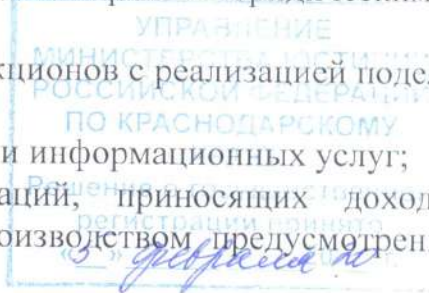 УПРАВЛЕНИЕ
МИНИСТЕРСТВА ЮСТИЦИИ
кционов с реализацией поде
РОССИЙСКОЙ ФЕДЕРАЦИИ
ПО КРАСНОДАРСКОМУ
и информационных услуг;
Решение о государственной
аций, приносящих доход
регистрации принято
оизводством предусмотрен
«5» февраля 20 г.